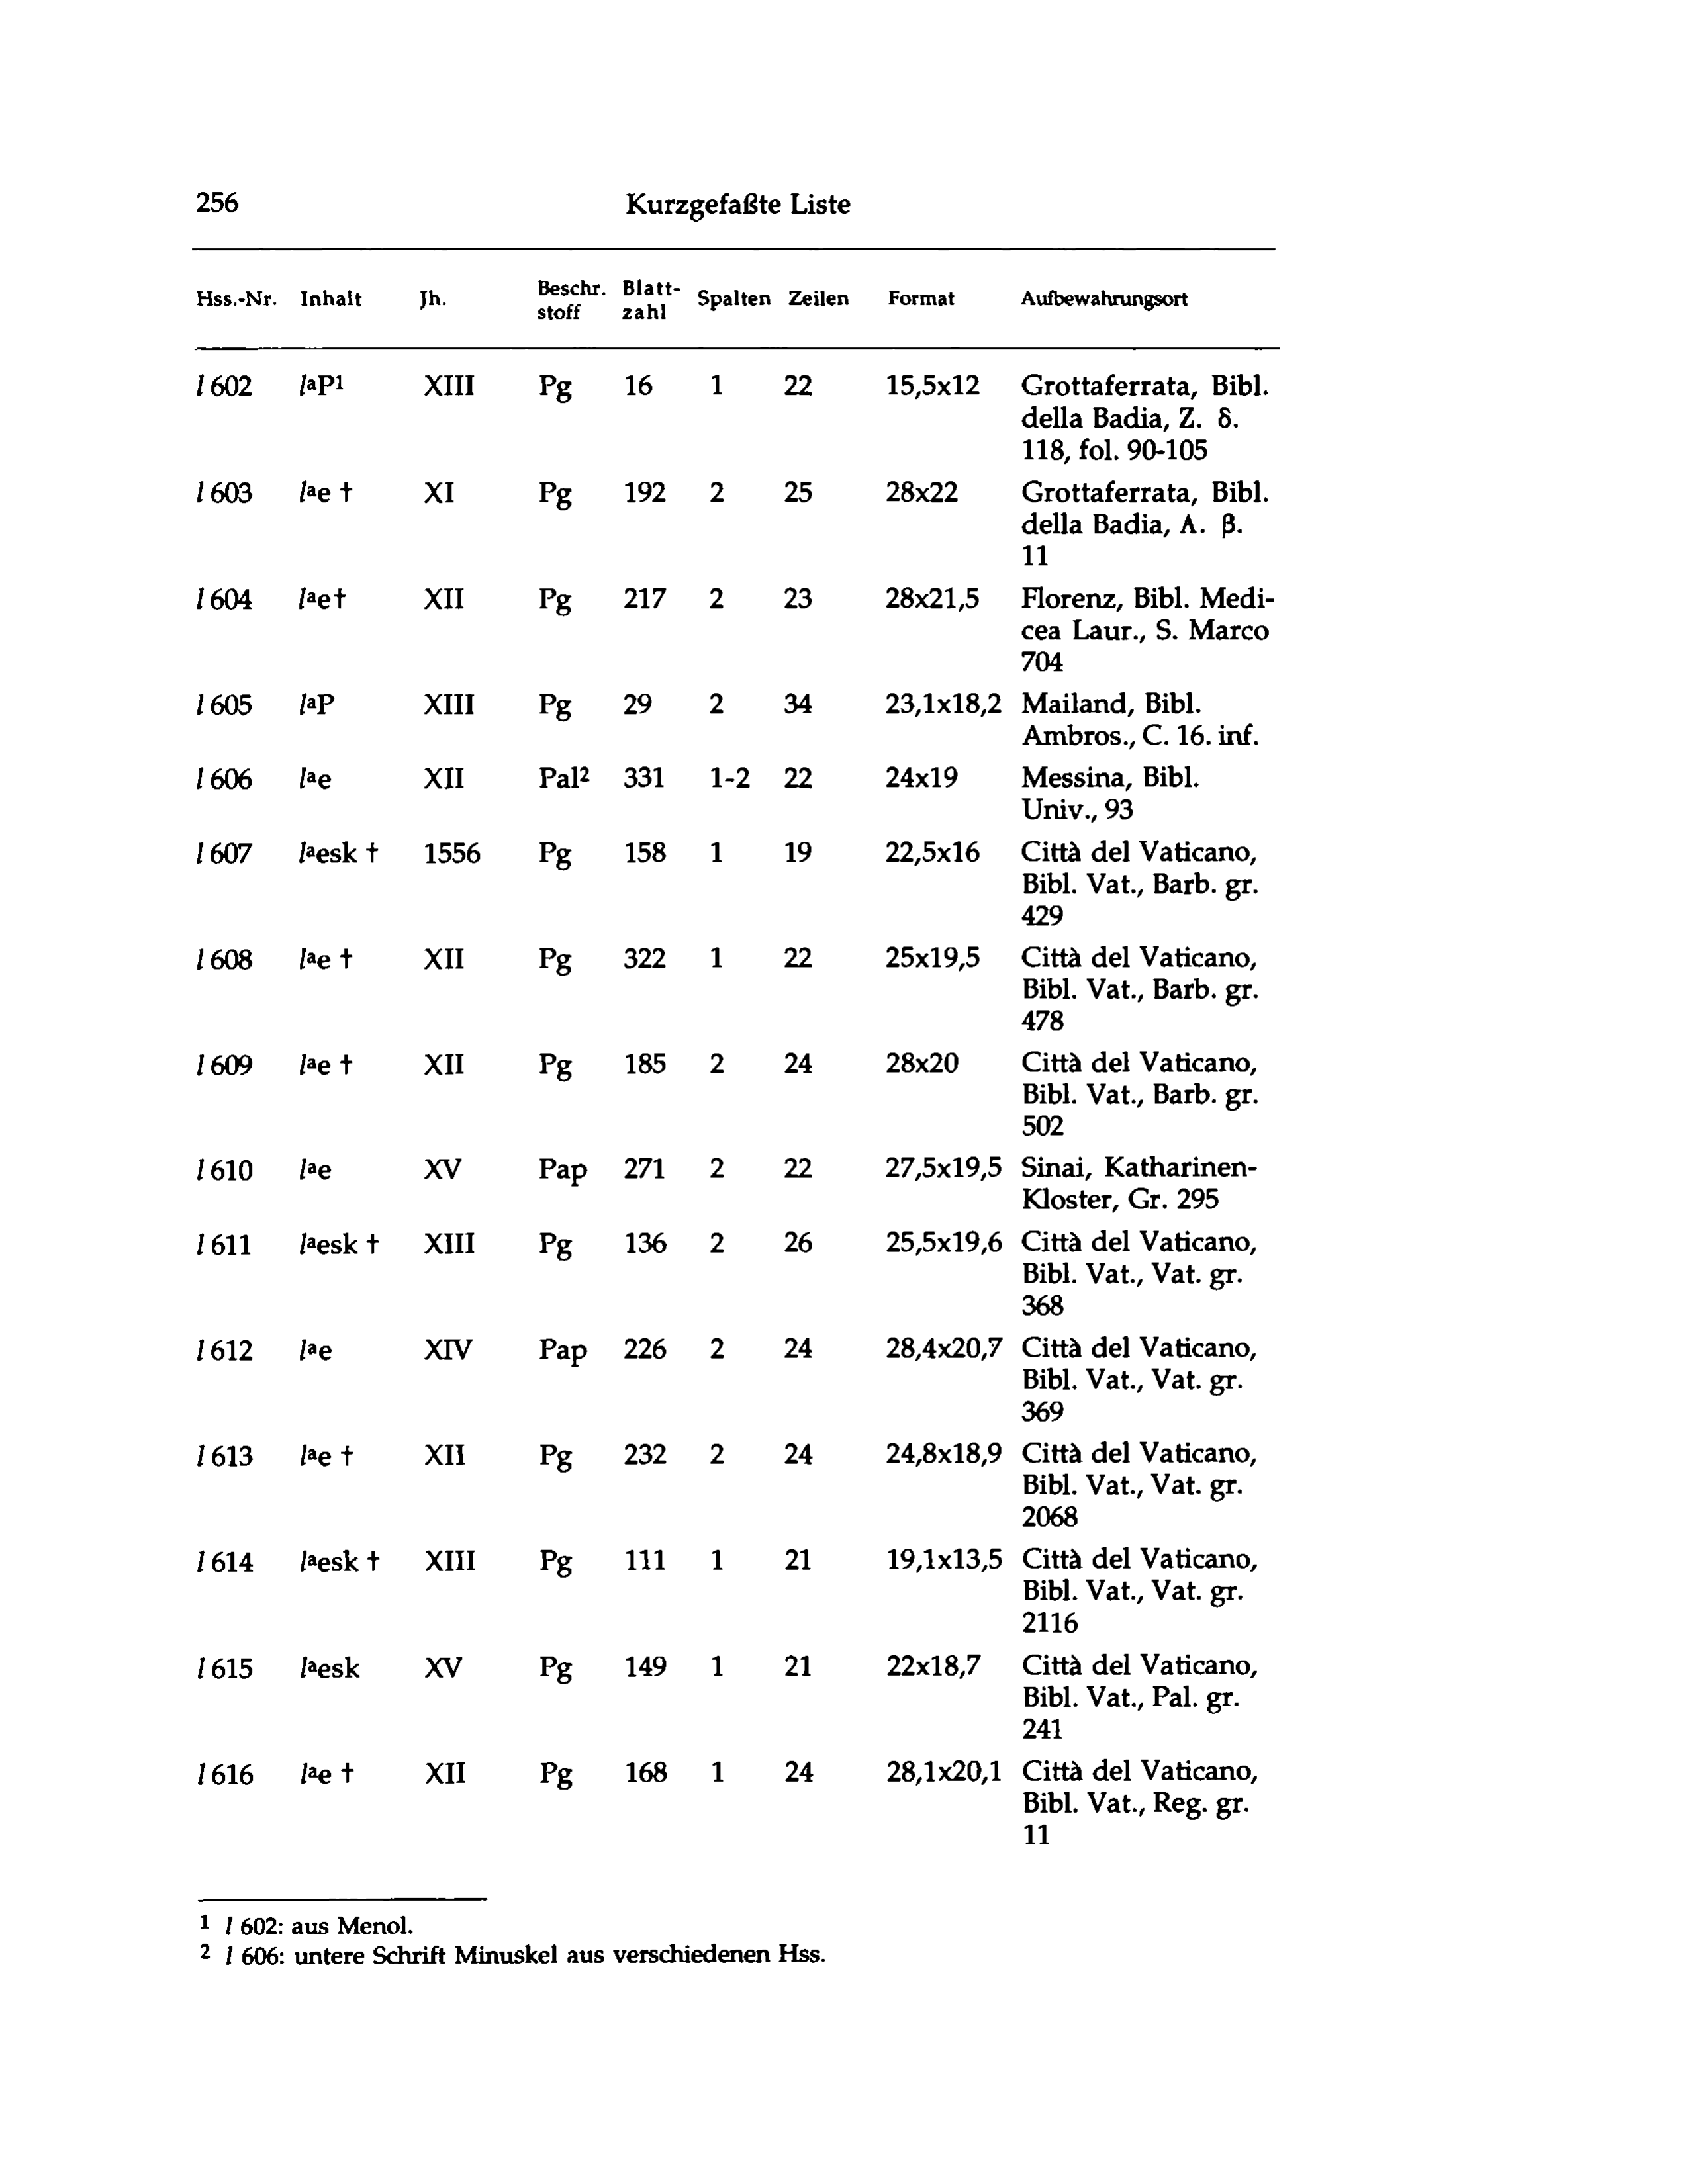 256 Kurzgefaßte Liste
Hss.-Nr. Inhalt Jh. Beschr. Blatt- Spalten Zeilen Format Aufbewahrungsort
stoff zahl
l 602 lᵃP¹ XIII Pg 16 1 22 15,5x12 Grottaferrata, Bibl.
della Badia, Z. δ.
118, fol. 90-105
l 603 lᵃe † XI Pg 192 2 25 28x22 Grottaferrata, Bibl.
della Badia, A. β.
11
l 604 lᵃe† XII Pg 217 2 23 28x21,5 Florenz, Bibl. Medi-
cea Laur., S. Marco
704
l 605 lᵃP XIII Pg 29 2 34 23,1x18,2 Mailand, Bibl.
Ambros., C. 16. inf.
l 606 lᵃe XII Pal² 331 1-2 22 24x19 Messina, Bibl.
Univ., 93
l 607 lᵃesk † 1556 Pg 158 1 19 22,5x16 Città del Vaticano,
Bibl. Vat., Barb. gr.
429
l 608 lᵃe † XII Pg 322 1 22 25x19,5 Città del Vaticano,
Bibl. Vat., Barb. gr.
478
l 609 lᵃe † XII Pg 185 2 24 28x20 Città del Vaticano,
Bibl. Vat., Barb. gr.
502
l 610 lᵃe XV Pap 271 2 22 27,5x19,5 Sinai, Katharinen-
Kloster, Gr. 295
l 611 lᵃesk † XIII Pg 136 2 26 25,5x19,6 Città del Vaticano,
Bibl. Vat., Vat. gr.
368
l 612 lᵃe XIV Pap 226 2 24 28,4x20,7 Città del Vaticano,
Bibl. Vat., Vat. gr.
369
l 613 lᵃe † XII Pg 232 2 24 24,8x18,9 Città del Vaticano,
Bibl. Vat., Vat. gr.
2068
l 614 lᵃesk † XIII Pg 111 1 21 19,1x13,5 Città del Vaticano,
Bibl. Vat., Vat. gr.
2116
l 615 lᵃesk XV Pg 149 1 21 22x18,7 Città del Vaticano,
Bibl. Vat., Pal. gr.
241
l 616 lᵃe † XII Pg 168 1 24 28,1x20,1 Città del Vaticano,
Bibl. Vat., Reg. gr.
11
1 l 602: aus Menol.
2 l 606: untere Schrift Minuskel aus verschiedenen Hss.